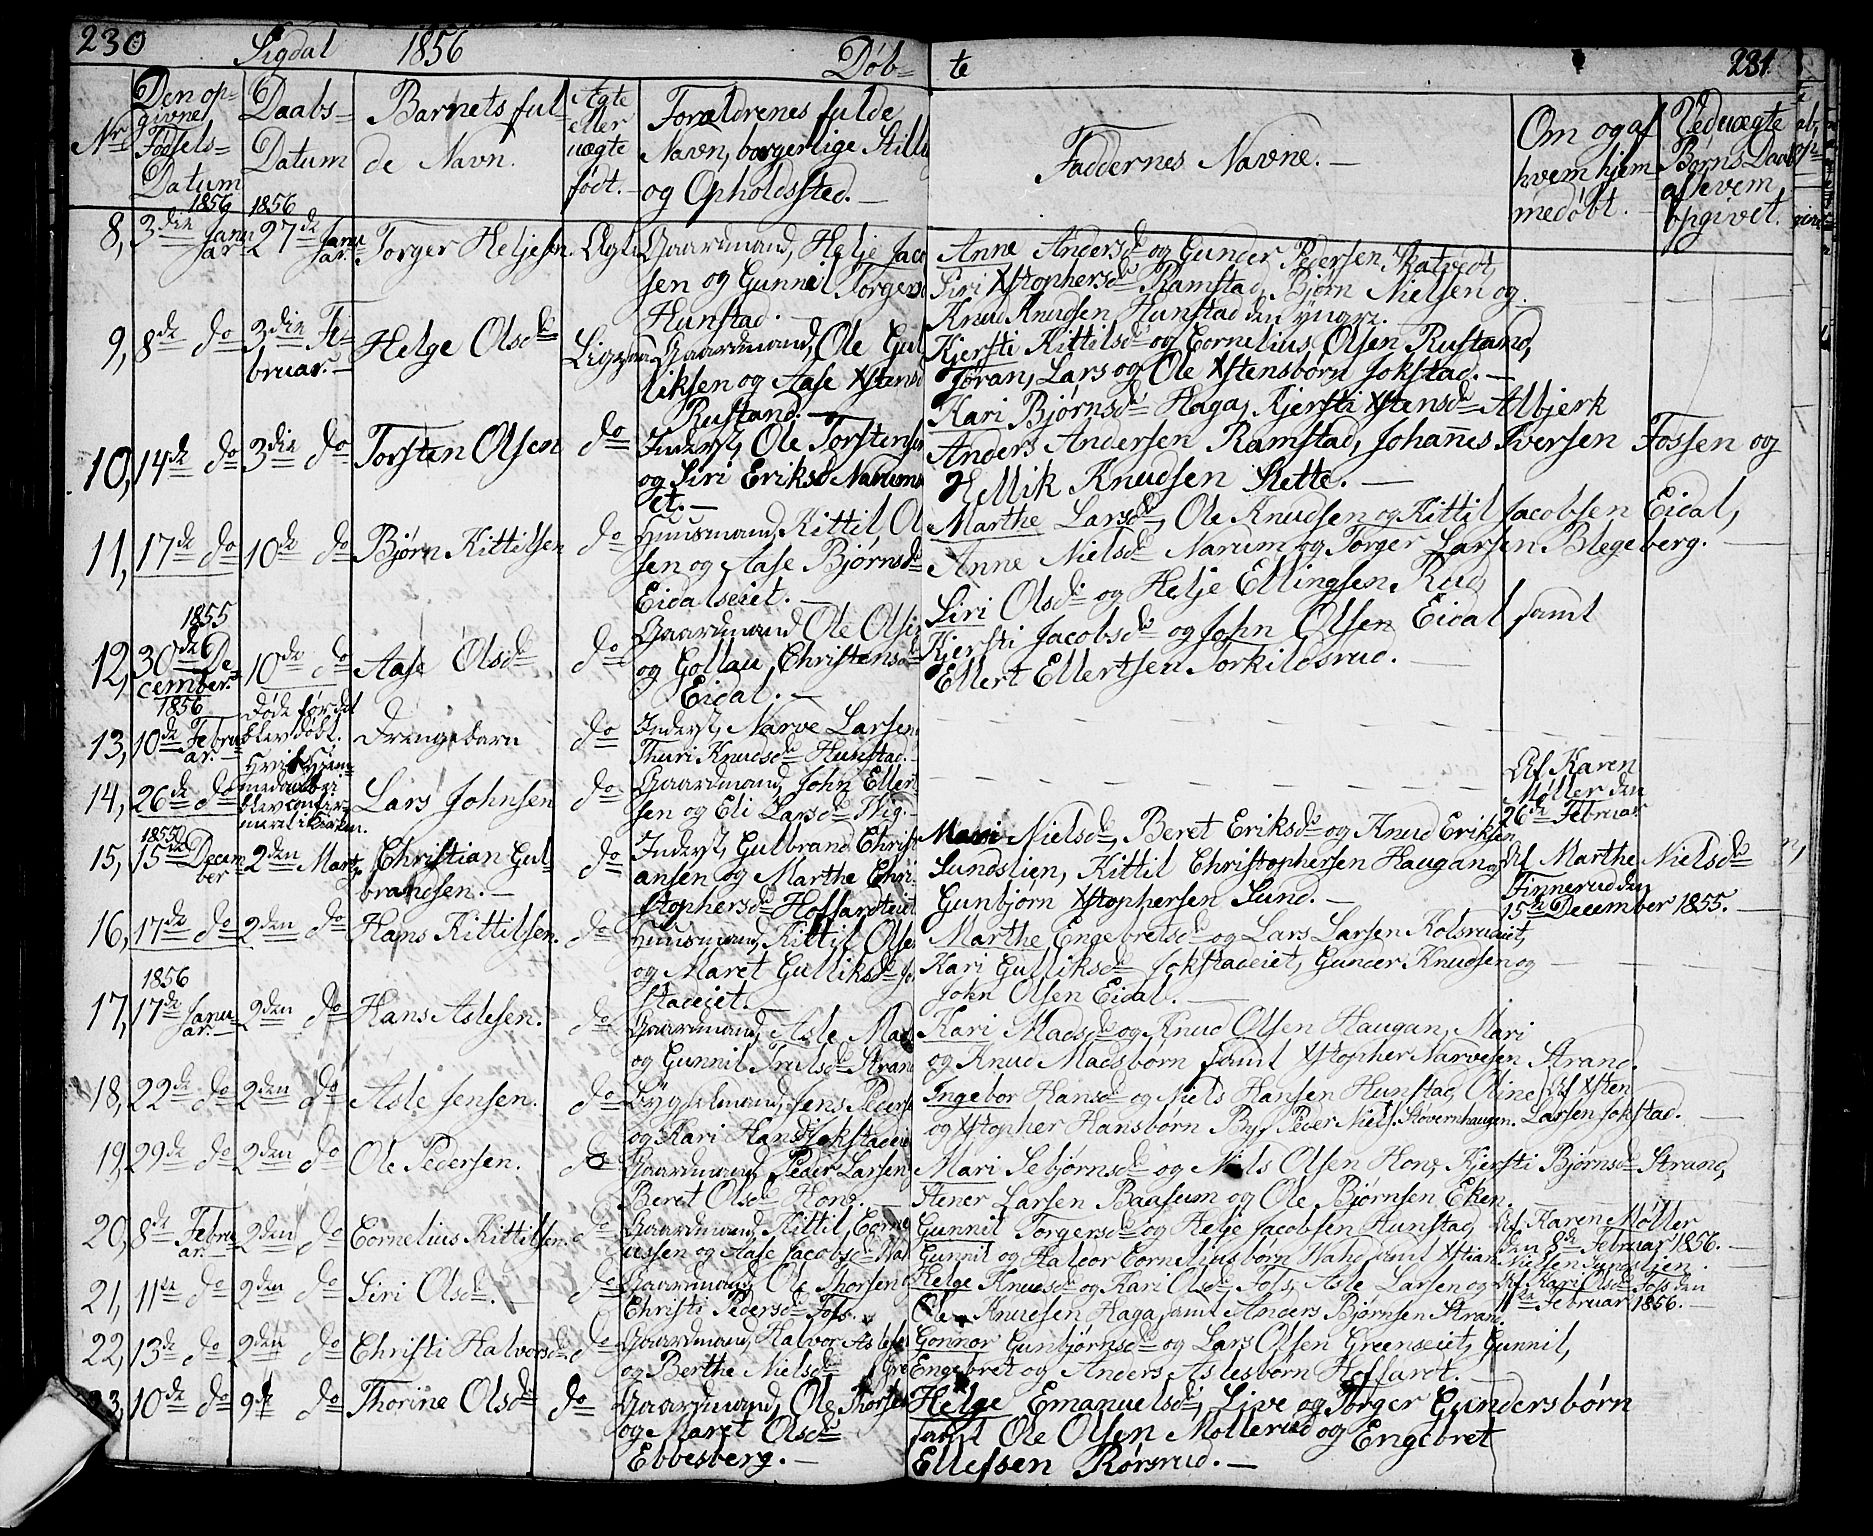 230 Sigdal 1856 Døb= te 231.
Nr
Den op=
givne
Fødsels=
Datum
Daabs=
Datum
Barnets ful
de Navn.
Ægte
eller
uægte
født.—
Forældrenes fulde
Navn, borgerlige Still
og Opholdssted.—
Faddernes Navne.—
Om og af
hvem hjem
medøbt.
Ved uægte
Børns Daab
af hvem
opgivet.
1856 1856
8, 3die Janu ar 27de Janu ar. Torger Heljesen. Ægte
Gaardmand, Helje Jaco
sen og Gunnil Torgersd
Hunstad.—
Anne Andersd og Gunder Pedersen Ratvedt,
Siri Xstophersd Ramstad, Bjørn Nielsen og
Knud Knudsen Hunstad den yngre.
9, 8de do 3die Fe= bruar.— Helge Olsd
Gaardmand, Ole Gul
liksen og Aase Xstensd
Rustand.—
Kjersti Kittilsd og Cornelius Olsen Rustand,
Jøran, Lars og Ole Xstensbørn Jokstad.—
10, 14de do 3die do Torsten Olsen do
Inderst, Ole Torstensen
og Siri Eriksd Narums
et.—
Kari Bjørnsd Haga, Kjersti Xstensd Albjerk
Anders Andersen Ramstad, Johannes Iversen Fossen og
Hellik Knudsen Slette.—
11, 17de do 10de do Bjørn Kittilsen do
Huusmand, Kittil Ol
sen og Aase Bjørnsd
Eidalseiet.—
Marthe Larsd, Ole Knudsen og Kittil Jacobsen Eidal,
Anne Nielsd Narum og Torger Larsen Blegeberg.
1855
12, 30de De cember. 10de do Aase Olsd do
Gaardmand Ole Olsen
og Gollau Christensd
Eidal.—
Siri Olsd og Helje Ellingsen Rud
Kjersti Jacobsd og John Olsen Eidal samt
Ellert Ellertsen Torkildsrud.—
1856
13, 10de Febru ar.— Døde før det blev døbt. Drengebarn do
Inderst, Narve Larsen
Thuri Knudsd Hunstad.
14, 26de do Lars Johnsen do
Gaardmand, John Eller
sen og Eli Larsd Wig.—
Af Karen
Møller den
26de Februar
1855
15, 15de Decem ber 2den Marts Christian Gul=
brandsen.— do
Inderst, Gulbrand Christi
ansen og Marthe Chri=
stophersd Hoffardteiet
Mari Nielsd, Beret Eriksd og Knud Eriksen
Sundslien, Kittil Christophersen Haugan og
Gunbjørn Xstophersen Sund.—
Af Marthe Nielsd
Finnerud den
15de December 1855.—
16, 17de do 2den do Hans Kittilsen. do
Huusmand, Kittil Olsen
og Maret Gulliksd Jok
stadeiet.—
Marthe Engebretsd og Lars Larsen Kolsrudeiet,
Kari Gulliksd Jokstadeiet, Gunder Knudsen og
John Olsen Eidal.—
1856
17, 17de Janu ar.— 2den do Hans Aslesen. do
Gaardmand, Asle Mad
og Gunnil Trulsd Strand
Kari Madsd og Knud Olsen Haugan, Mari
og Knud Madsbørn samt Xstopher Narvesen Strand.
18, 22de do 2den do Asle Jensen. do
Bygselmand, Jens Peders
og Kari Hansd Jokstadeie
Ingebor Hansd og Niels Hansen Hunstad, Oline
og Xstopher Hansbørn By, Peder Niels. Støvernhaugen.
Af Xsten
Larsen Jokstad.
19, 29de do 2den do Ole Pedersen. do
Gaardmand, Peder Larsen
Beret Olsd Hov.—
Mari Sebjørnsd og Niels Olsen Hov, Kjersti Bjørnsd Strand,
Stener Larsen Baasum og Ole Bjørnsen Eken.
20, 8de Febru ar. 2den do Cornelius Kittilsen. do
Gaardmand, Kittil Corne
iussen og Aase Jacobsd
Gunnil Torgersd og Helje Jacobsen Hunstad,
Gunnil og Haldor Corneliusbørn samt Xstian Nielsen Sundslien.
Af Karen Møller
den 8de Februar 1856.—
21, 11te do 2den do Siri Olsd.— do
Gaardmand, Ole Thorsen
Christi Pedersd Foss.
Helge Knudsd og Kari Olsd, Fos, Asle Larsen og
Ole Knudsen Haga, samt Anders Bjørnsen Strand.
Af Kari Olsd Foss den
11te Februar 1856.—
22, 13de do 2den do Christi Halvorsd. do
Gaardmand, Halvor Aslese
og Berthe Nielsd
Gonnor Gunbjørnsd og Lars Olsen Grenseiet, Gunnil,
Engebret og Anders Aslesbørn Hoffardt.—
3, 10de do 9de do Thorine Olsd do
Gaardmand, Ole Thorsen
og Maret Olsd
Ebbesberg.—
Helge Emanuelsd, Live og Torger Gundersbørn
samt Ole Olsen Mollerud og Engebret
Ellefsen Rørsrud.—